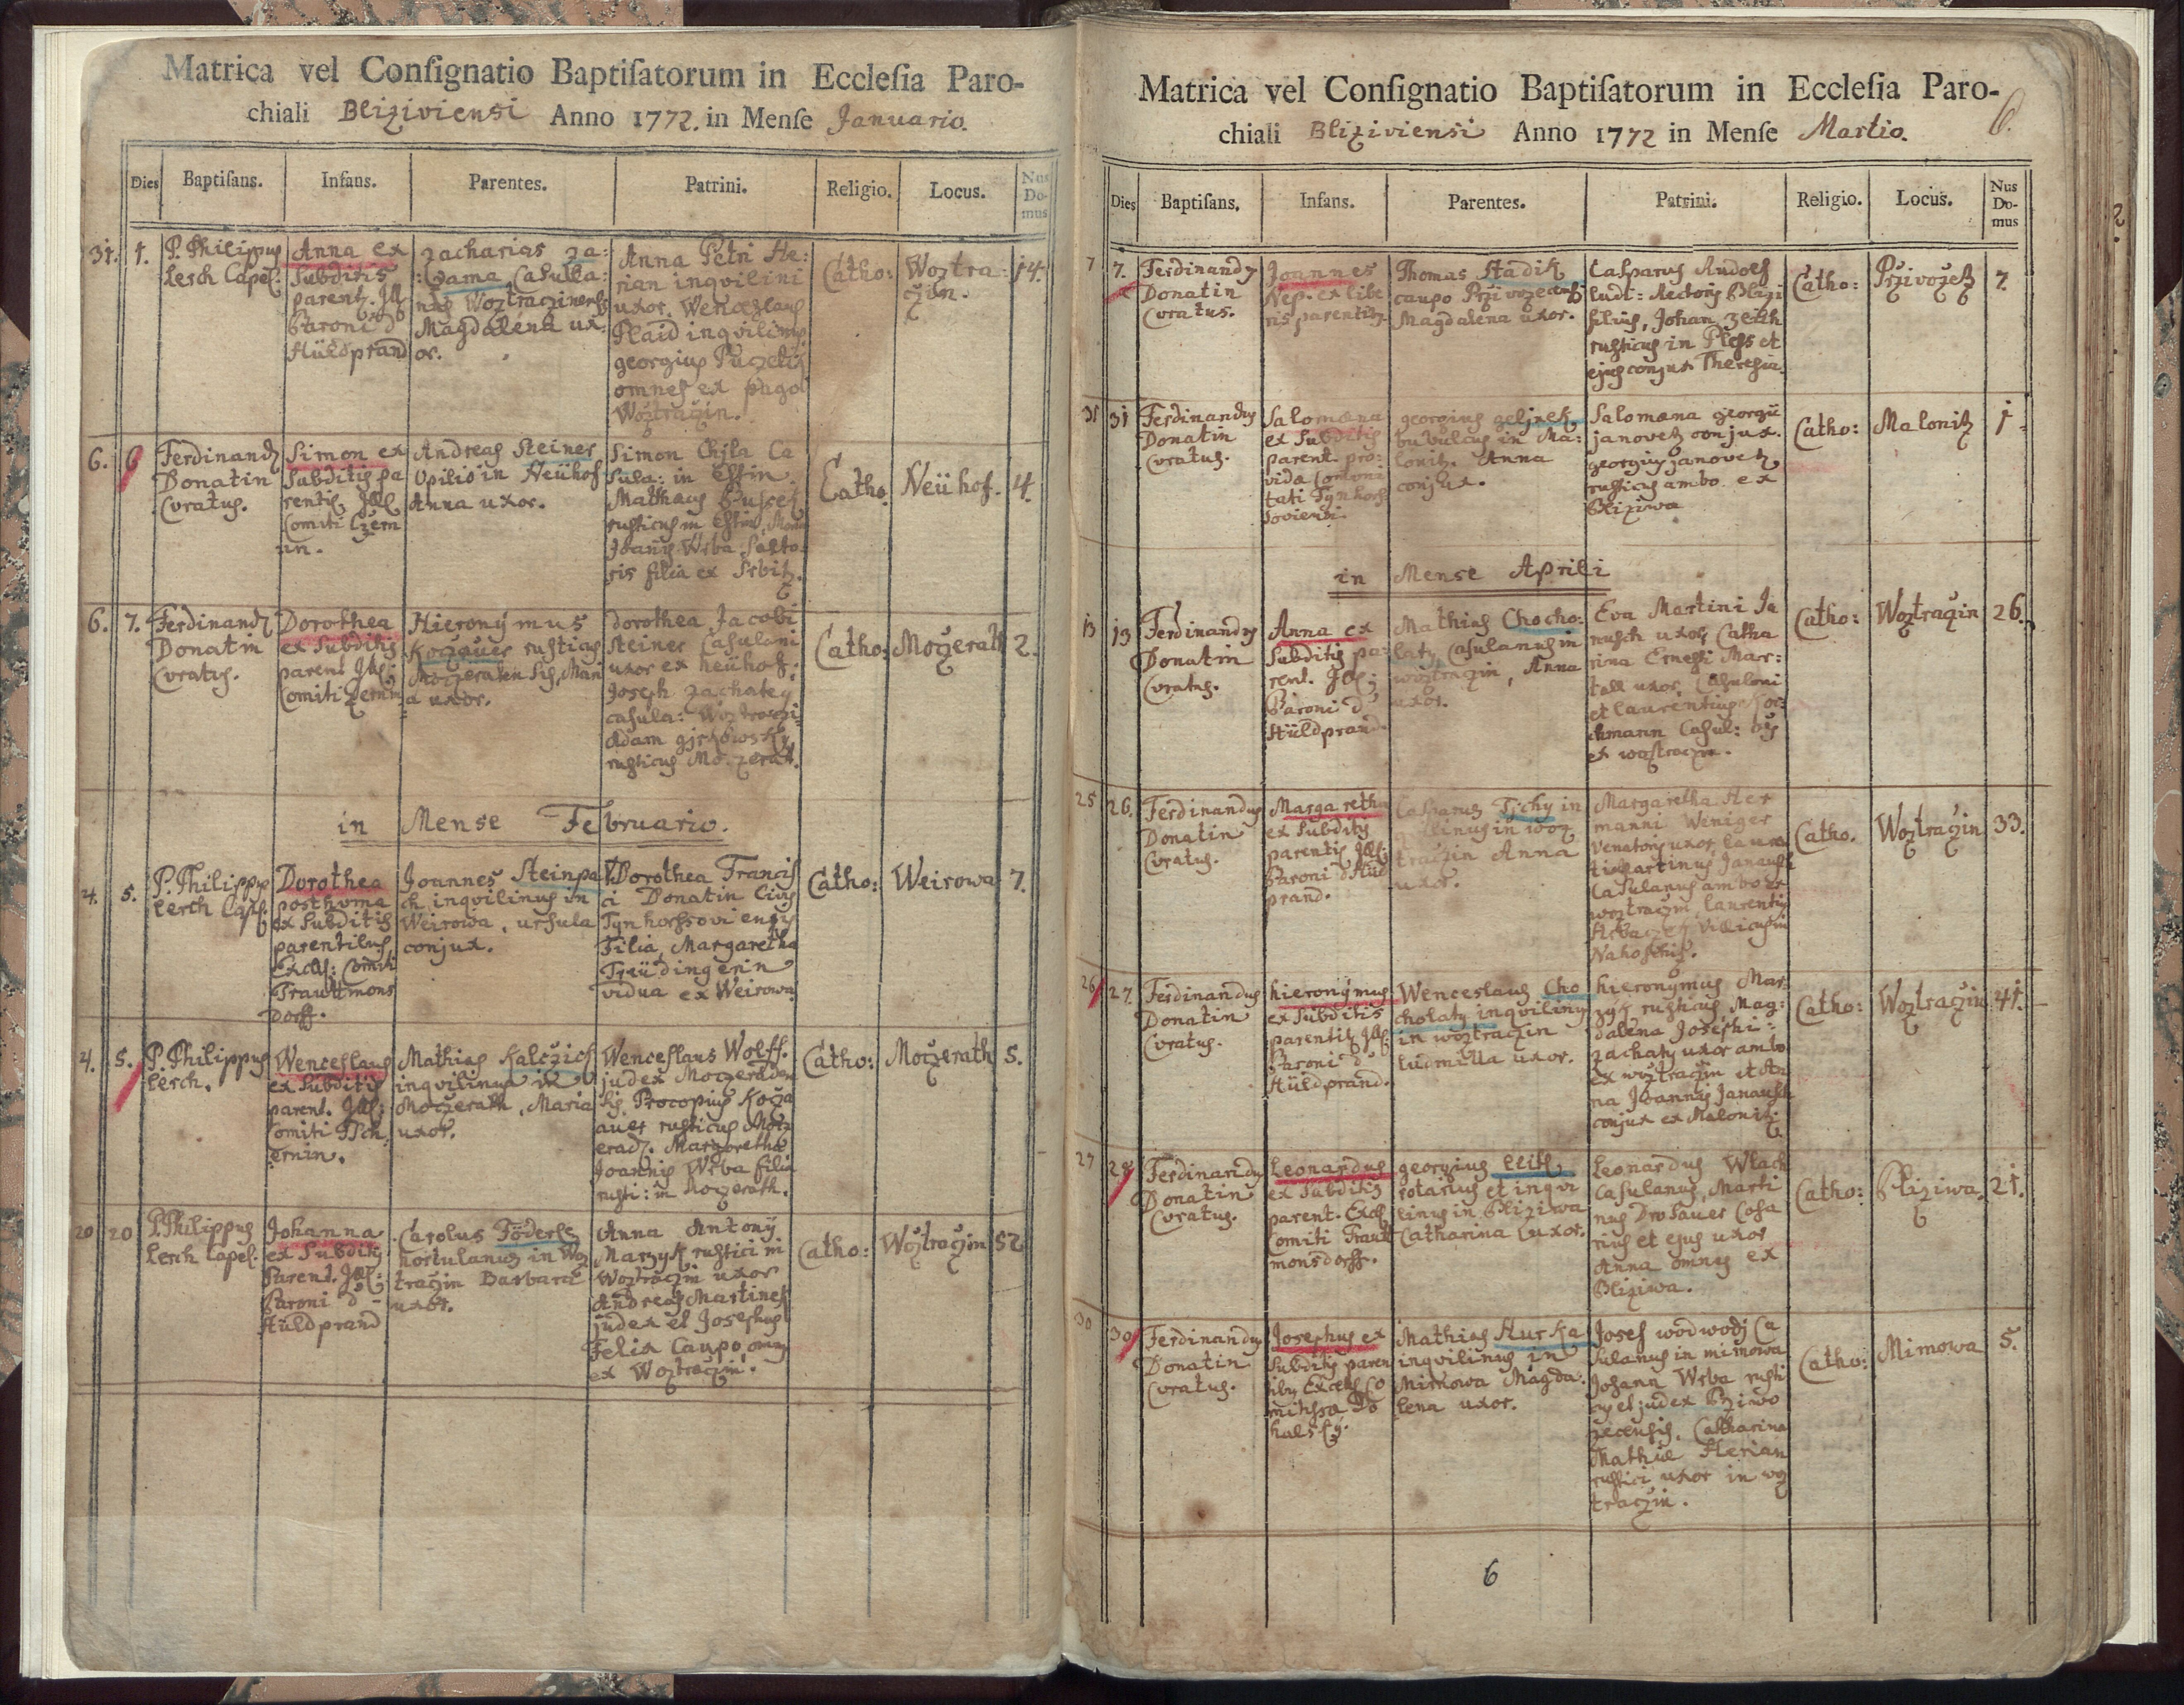 Matrica vel Consignatio Baptisatorum in Ecclesia Paro-
chiali Bliziviensi Anno 1772. in Mense Januario.
Dies Baptisans. Infans. Parentes. Patrini. Religio. Locus. Nus Do- mus
31. 1.
P. Philippus
Lesch Capel:
Anna ex
Subditis
parent. Ill
Baroni d
Hüldprand
Zacharias Za:
Magdalena ux:
or.
Anna Petri He:
rian inqvilini
uxor. Wenceslaus
Plaid inqvilinus
georgius
omnes ex pago
Woztraczin.
Catho:
Woztra:
czin.
14.
6. 6
Ferdinand9
Donatin
Curatus.
Simon ex
Subditis pa
rentib9 Ill
Comiti Czern
in.
Andreas Steiner
Opilio in Neühof
Anna uxor.
Simon
Sula: in
Mathaus
rusticus in
Joanis Wrba
ris filia ex
Catho
Neühof.
4.
6. 7.
Ferdinand9
Donatin
Curatus.
Dorothea
ex Subditis
parent Ill:
Comiti Czernin
Hieronymus
Koczauer rusticus
a uxor.
dorothea Jacobi
Steiner Casulani
uxor ex neühof:
Joseph Zachaty
casula:
Adam
rusticus
Catho:
Moczerath
2.
in Mense Februario.
4. 5.
P. Philipp9
Lesch Capl.
Dorothea
posthuma
ex Subditis
parentibus
Comiti
Trauttmons
dorff.
Joannes Steinpa
ch inqvilinus in
Weirowa, ursula
conjux.
Dorothea Francis
ci Donatin Civis
Tynhorssoviensis
Filia, Margaretha
vidua ex Weirowa
Catho:
Weirowa
7.
4. 5.
P. Philippus
Lesch.
Wenceslaus
ex Subditis
parent. Ill:
Comiti Tsch
ernin.
Mathias Kalczich
inqvilinus in
Moczerath, Maria
uxor.
Wenceslaus Wolff.
judex
sis, Procopius Kocz
auer rusticus
Margaretha
Joannis Wrba filia
rusti: in Moczerath.
Catho:
Moczerath
5.
20 20
P. Philippus
Lesch Capel:
Johanna
ex Subditis
Parent. Ill:
Baroni d
Hüldprand
Carolus
hortulanus in Woz
traczin Barbara
uxor.
Anna Antonÿ
Marzyk rustici in
Woztraczin uxor
Andreas Martinez
judex et Josephus
Felix Caupo
ex Woztraczin.
Catho:
Woztraczin
52
Matrica vel Consignatio Baptisatorum in Ecclesia Paro-
chiali Bliziviensi Anno 1772 in Mense Martio.
6.
Dies Baptisans. Infans. Parentes. Patrini. Religio. Locus. Nus Do- mus
7 7.
Ferdinand9
Donatin
Curatus.
Joannes
Nep. ex libe
ris parentib9
Thomas Stadik
caupo
Magdalena uxor.
Casparus Rudolf
filius, Johan
rusticus in Ples et
ejus conjux Theresia.
Catho:
Przivozetz
7.
31 31
Ferdinandus
Donatin
Curatus.
Salomæna
ex Subditis
parent. pro:
georgius
bubulcus in Ma:
lonitz. Anna
conjux.
Salomæna georgii
janovetz conjux.
georgius janovetz
rusticus ambo ex
Bliziwa
Catho:
Malonitz
1
in Mense Aprili
13 13
Ferdinandus
Donatin
Curatus.
Anna ex
Subditis pa:
rent. Ill:
Baroni d
Hüldprand.
Mathias Chocho:
laty Casulanus in
woztraczin, Anna
uxor.
Eva Martini Ja
nusch uxor, Catha
rina Ernesti Mar:
uxor. Casuloni
et laurentius
Casul:
ex woztraczin.
Catho:
Woztraczin
26.
25 26.
Ferdinandus
Donatin
Curatus.
Margaretha
ex Subditis
parentib9 Ill:
Baroni d Hüld
prand.
Casparus Tichy in
qvilinus in woz
traczin Anna
uxor.
Margaretha Her
manni Weniger
Venatoris uxor,
Casulanus ambo ex
woztraczin, laurentius
Catho.
Woztraczin
33.
26 27.
Ferdinandus
Donatin
Curatus.
hieronymus
ex Subditis
parentib9 Ill:
Baroni d
Hüldprand.
Wenceslaus Cho
cholaty inqvilinus
in woztraczin
Ludmilla uxor.
hieronymus Mar
zyk rusticus, Mag:
dalena Josephi
zachaty uxor ambo
ex woztraczin et An
na Joannis Janausch
conjux ex Malonitz.
Catho:
Woztraczin
41.
27 28
Ferdinandus
Donatin
Curatus.
Leonardus
ex Subditis
parent. Excel
Comiti Traut
monsdorff.
georgius
rotarius et inqvi
linus in Bliziwa
Catharina uxor.
Leonardus Wlach
Casulanus, Marti
nus
rius et ejus uxor
Anna omnes ex
Bliziwa.
Catho:
Bliziwa.
21.
30 30
Ferdinandus
Donatin
Curatus.
Josephus ex
Subditis paren
Mathias Hurka
inqvilinus in
Mirkowa Magda
lena uxor.
Josef wodwodj Ca
sulanus in mirkowa
Johann Wrba rusti
cus et judex Prziwo
zecensis. Catharina
Mathiæ Herian
rustici uxor in woz
traczin.
Catho:
Mirkowa
5.
6